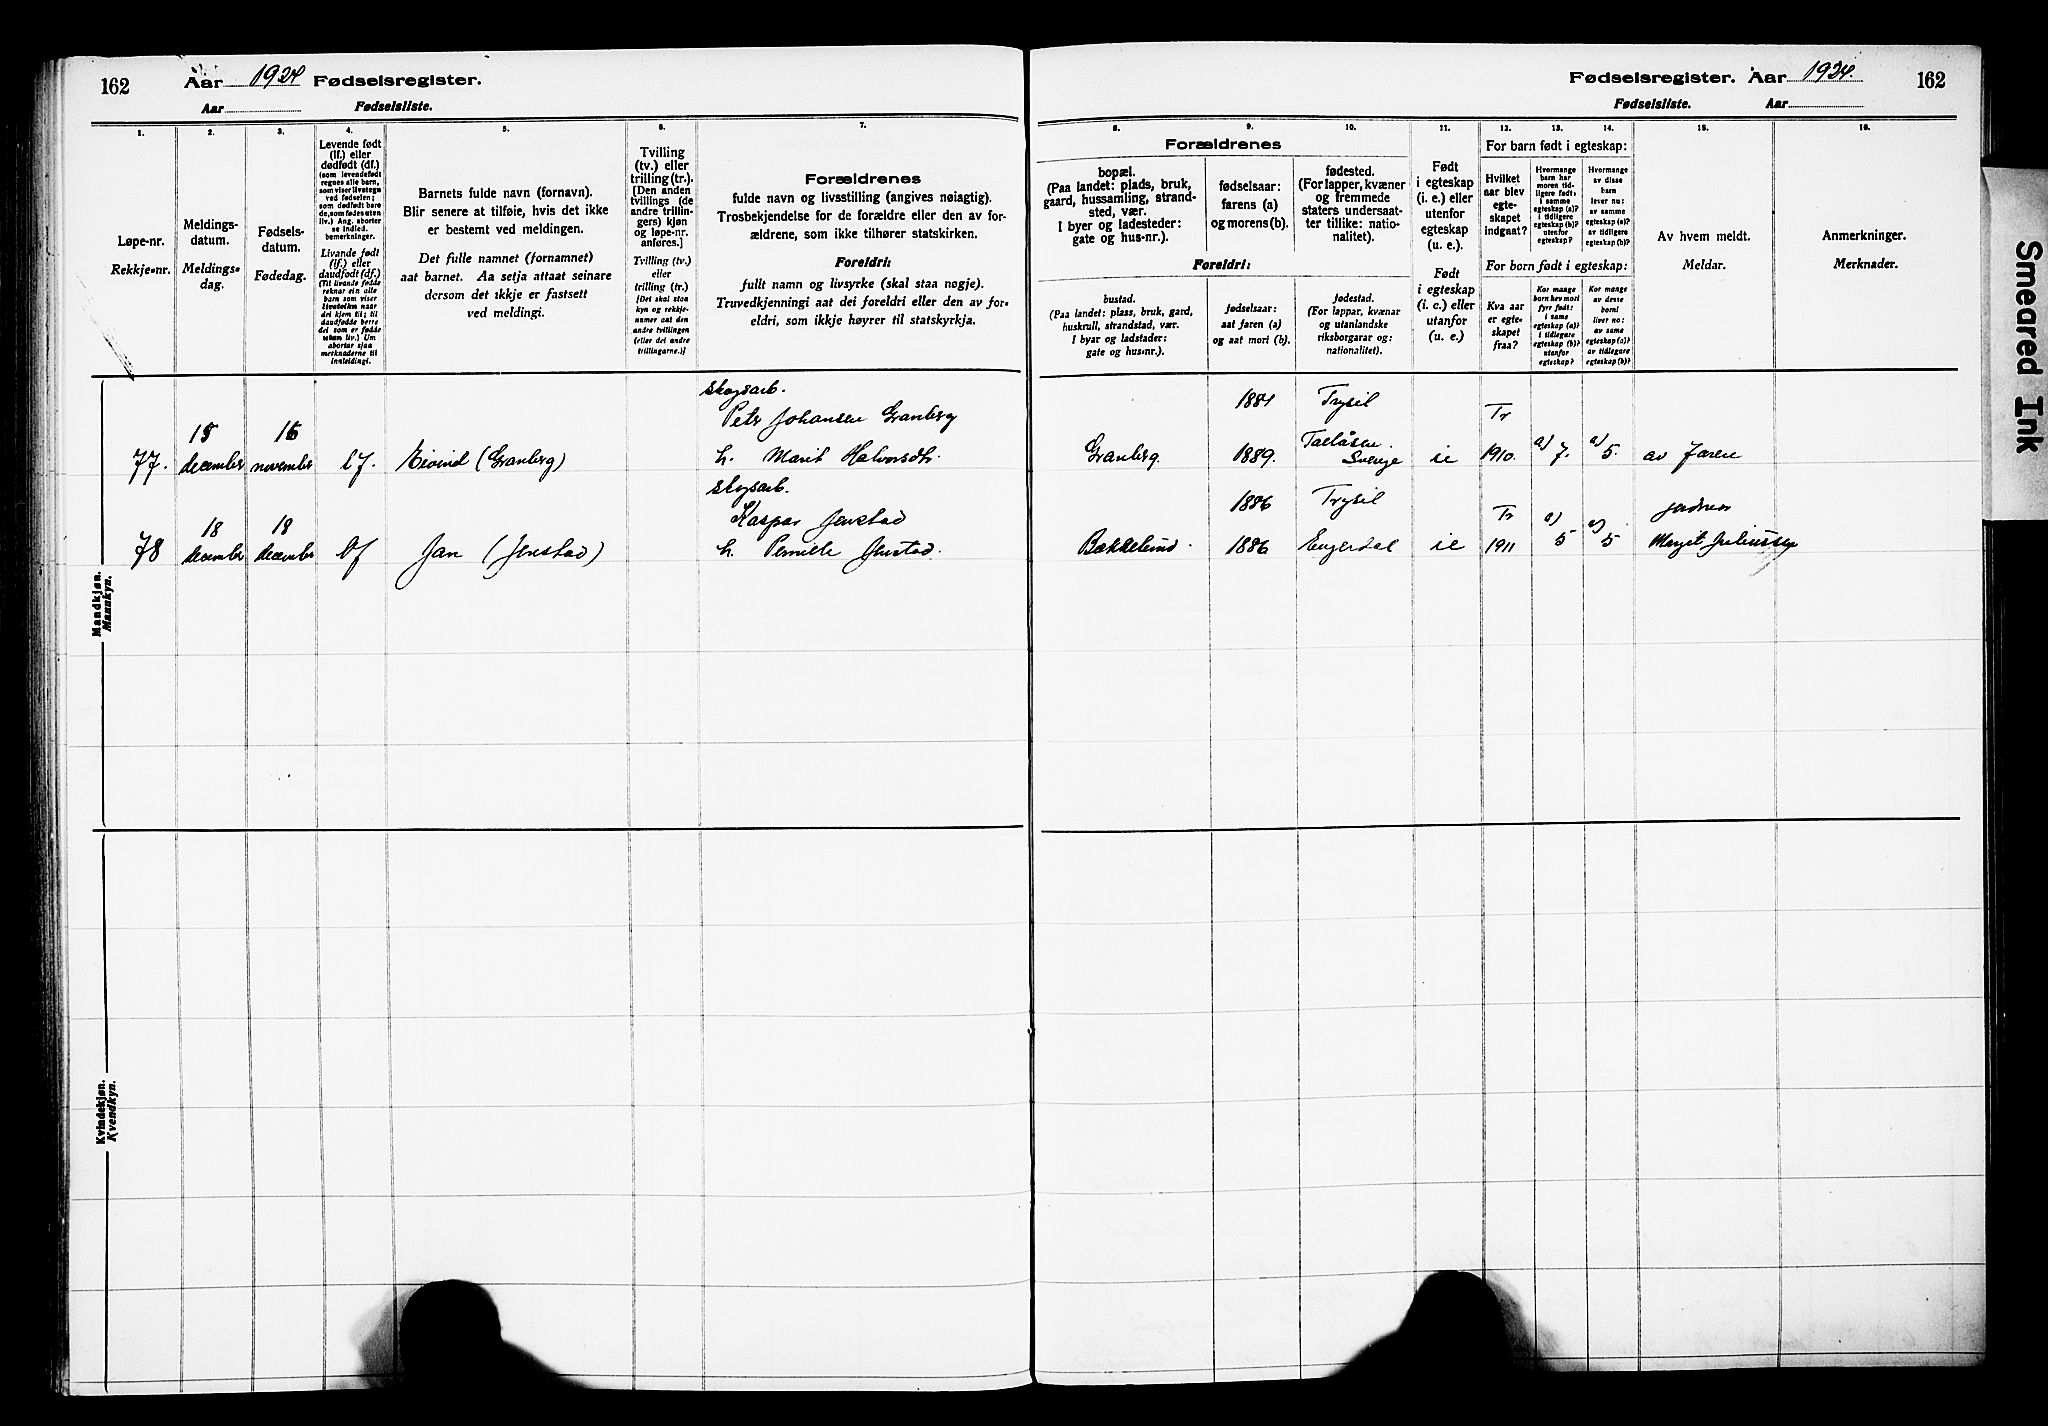 162 Aar 1924 Fødselsregister.
Aar Fødselsliste.
Fødselsregister. Aar 1924. 162
Fødselsliste. Aar
1. 2. 3. 4. 5. 6. 7. 8. 9. 10. 11. 12. 13. 14. 15. 16.
Løpe-nr.
Rekkje-nr.
Meldings-
datum.
Meldings-
dag.
Fødsels-
datum.
Fødedag.
Levende født
(lf.) eller
dødfødt (df.)
(som levendefødt
regnes alle barn,
som viser livstegn
ved fødselen;
som dødfødt bare
de, som fødes uten
liv.) Ang. aborter
se indled.
bemerkninger.
Livande født
(lf.) eller
daudfødt (df.)
(Til livande fødde
reknar ein alle
barn som viser
livsteikn naar
dei kjem til; til
daudfødde berre
dei som er fødde
utan liv.) Um
abortar sjaa
merknaderne til
innleidingi.
Barnets fulde navn (fornavn).
Blir senere at tilføie, hvis det ikke
er bestemt ved meldingen.
Det fulle namnet (fornamnet)
aat barnet. Aa setja attaat seinare
dersom det ikkje er fastsett
ved meldingi.
Tvilling
(tv.) eller
trilling (tr.).
[Den anden
tvillings (de
andre trillin-
gers) kjøn
og løpe-nr.
anføres.]
Tvilling (tv.)
eller
trilling (tr.)
[Det skal staa
kyn og rekkje-
numer aat den
andre tvillingen
(eller dei andre
trillingarne.)]
Forældrenes
fulde navn og livsstilling (angives nøiagtig).
Trosbekjendelse for de forældre eller den av for-
ældrene, som ikke tilhører statskirken.
Foreldri:
fullt namn og livsyrke (skal staa nøgje).
Truvedkjenningi aat dei foreldri eller den av for-
eldri, som ikkje høyrer til statskyrkja.
Forældrenes
bopæl.
(Paa landet: plads, bruk,
gaard, hussamling, strand-
sted, vær.
I byer og ladesteder:
gate og hus-nr.).
fødselsaar:
farens (a)
og morens (b).
fødested.
(For lapper, kvæner
og fremmede
staters undersaat-
ter tillike: natio-
nalitet).
Foreldri:
bustad.
(Paa landet: plass, bruk, gard,
huskrull, strandstad, vær.
I byar og ladstader:
gate og hus-nr.).
fødselsaar:
aat faren (a)
og aat mori (b).
fødestad.
(For lappar, kvænar
og utanlandske
riksborgarar og:
nationalitet).
Født
i egteskap
(i. e.) eller
utenfor
egteskap
(u. e.).
Født
i egteskap
(i. e.) eller
utanfor
(u. e.)
For barn født i egteskap:
Hvilket
aar blev
egte-
skapet
indgaat?
Hvormange
barn har
moren tid-
ligere født:
i samme
egteskap (a)?
i tidligere
egteskap (b)?
utenfor
egteskap?
Hvormange
av disse
barn
lever nu:
av samme
egteskap (a)?
av tidligere
egteskap (b)?
For born født i egteskap:
Kva aar
er egte-
skapet
fraa?
Kor mange
born hev mori
fyrr født:
i same
egteskap (a)?
i tidlegare
egteskap (b)?
utanfor
egteskap?
Kor mange
av desse
borni
liver no:
av same
egteskap (a)?
av tidlegare
egteskap (b)?
Av hvem meldt.
Meldar.
Anmerkninger.
Merknader.
Mandkjøn.
Mannkyn.
skogsarb.
Peter Johansen Granberg 1881 Trysil Tr
77. 15 december 16 november Lf. Eivind (Granberg) h. Marit Halvorsdtr. Granberg. 1889. Sverige ie 1910. a) 7. a) 5. av faren
skogsarb.
Kaspar Jenstad 1886 Trysil Tr jordmor
78 18 december 18 december Lf Jan (Jenstad) h. Pernille Jenstad. Bækkelund. 1886 Engerdal ie 1911 a) 5 a) 5
Kvindekjøn.
Kvendkyn.
Smeared Ink